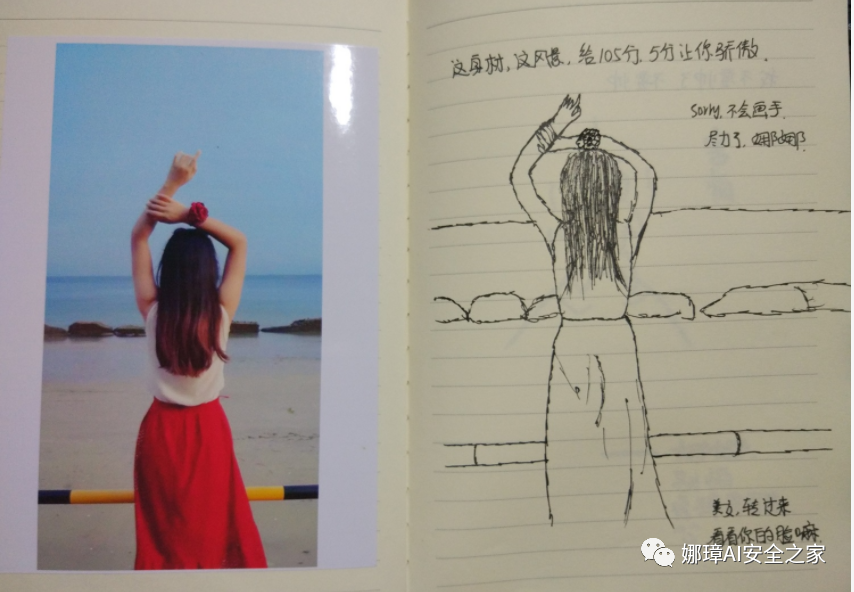 这身材,这风景,给105分,5分让你骄傲.
sorry,不会画手.
尽力了,娜娜.
美女,转过来
看看你的脸嘛
娜璋AI安全之家